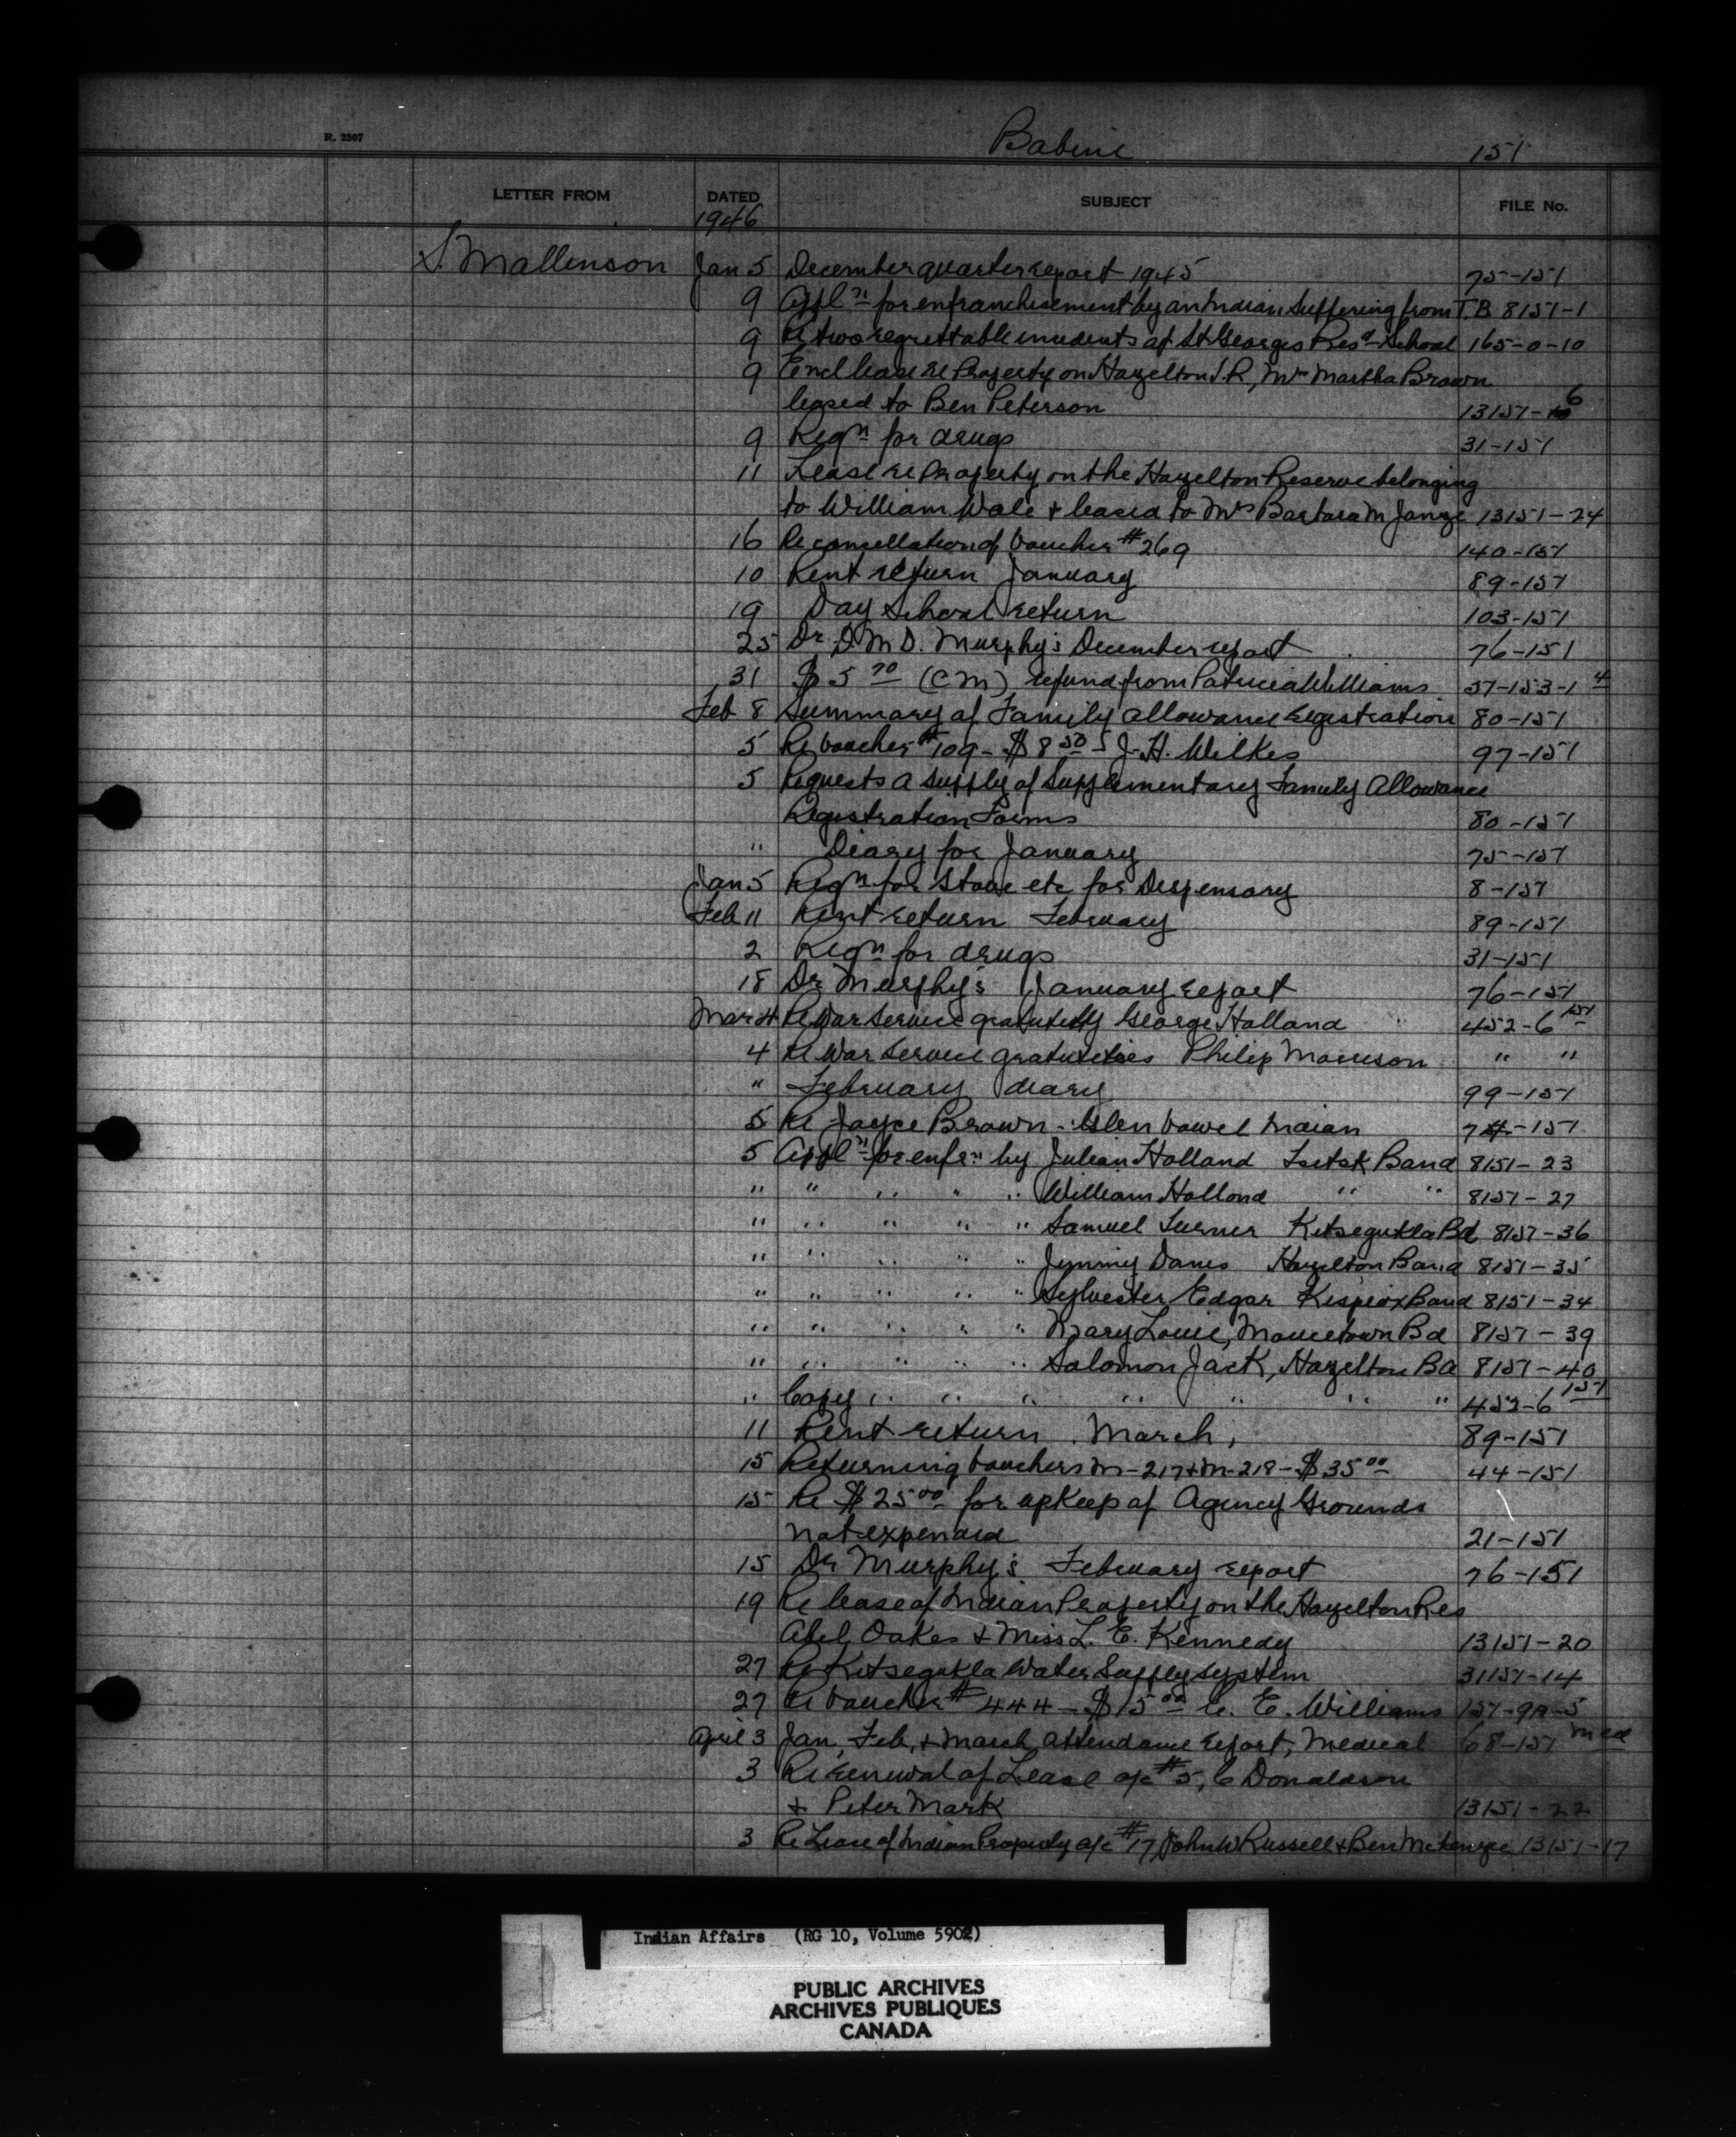 R. 2307
Babine 151
LETTER FROM DATED SUBJECT FILE No.
1946
S. Mallinson Jan 5 December quarter report 1945 75-151
9 Appl n for enfranchisement by an Indian suffering from T.B. 8151-1
9 Re two regrettable incidents at St Georges Res'd School 165-0-10
9 Encl lease re Property on Hazelton I.R, Mrs Martha Brown
leased to Ben Peterson 13151-6
9 Reqn for drugs 31-151
11 Lease re Property on the Hazelton Reserve belonging
to William Wale + leased to Mrs Barbara M 13151-24
16 Re cancellation of voucher #269 140-151
10 Rent return January 89-151
19 Day School return 103-151
25 Dr. D. M D. Murphy's December report 76-151
31 $5 70 (CM) refund from Patricia Williams 57-153-1 4
Feb 8 Summary of Family Allowance registration 80-151
5 Re voucher #109 - $8 50 J. H. Wilkes 97-151
5 Requests a supply of Supplementary Family Allowance
Registration Forms 80-151
" Diary for January 75-151
Jan 5 Reqn for stove etc for Dispensary 8-151
Feb 11 Rent return February 89-151
2 Reqn for drugs 31-151
18 Dr Murphy's January report 76-151
Mar 4 Re War Service gratuity George Holland 452-6 151
4 Re War Service gratuities Philip Morrison " "
" February diary 99-151
5 Re Joyce Brown - Glen Vowel Indian -151
5 Appl n for enfr n by Julian Holland Band 8151-23
" " " " " William Holland " " 8151-27
" " " " " Samuel Turner Kitsegukla Bd 8151-36
" " " " " Jimmy Hazelton Band 8151-35
" " " " " Sylvester Edgar Kispiox Band 8151-34
" " " " " Mary Louie, Moricetown Bd 8151-39
" " " " " Solomon Jack, Hazelton Bd 8151-40
" Copy " " " " " " " 452-6 151
11 Rent return March, 89-151
15 Returning vouchers M-217 + M-218 - $35 00 44-151
15 Re $25 00 for upkeep of Agency Grounds
not expended 21-151
15 Dr Murphy's February report 76-151
19 Re lease of Indian Property on the Hazelton Res
Abel Oakes + Miss L. E. Kennedy 13151-20
27 Re Kitsegukla Water Supply system 31151-14
27 Re voucher #444 - $15 00 E. Williams 151-9A-5
April 3 Jan, Feb, + March attendance report, Medical 68-151 Med
3 Re renewal of Lease a/c #5, C Donaldson
+ Peter Mark 13151-22
3 Re Lease of Indian Property a/c #17, John W Russell + Ben McKenzie 13151-17
Indian Affairs (RG 10, Volume 5902)
PUBLIC ARCHIVES
ARCHIVES PUBLIQUES
CANADA